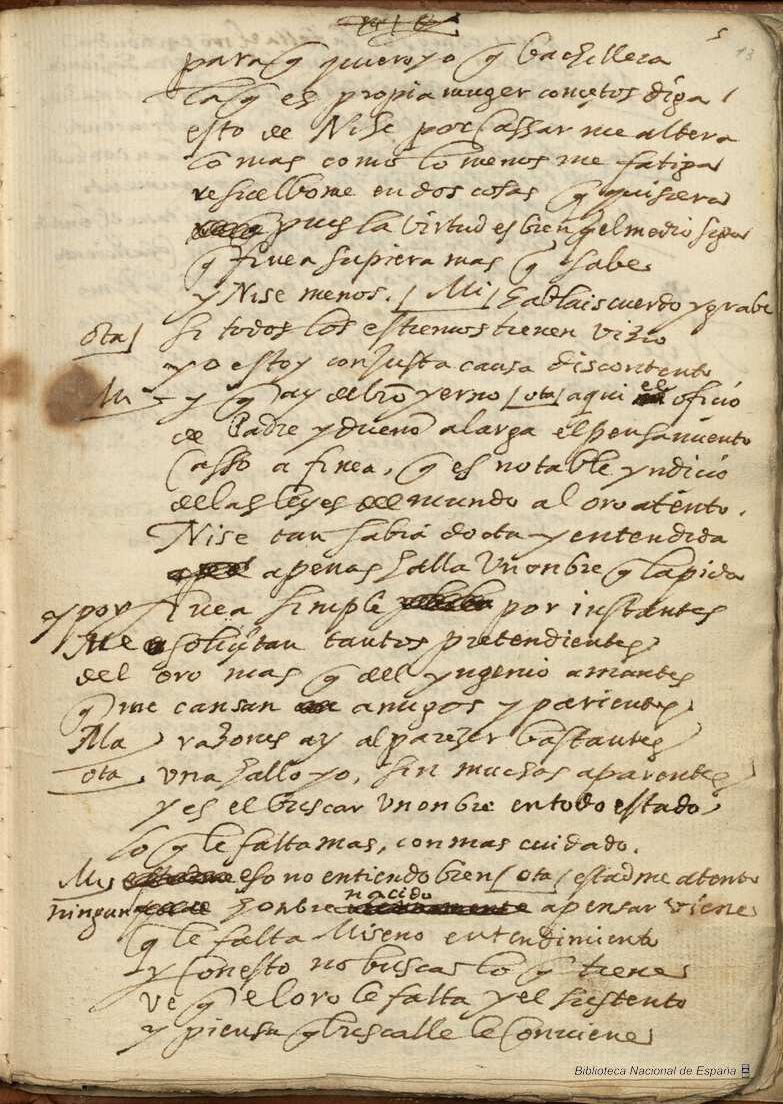 5 13
para q quiero yo q bachillera
la q es propia muger concetos diga
esto de Nise por cassar me altera
lo mas como lo menos me fatiga
resuelbome en dos cosas q quisiera
pues la virtud es bien q el medio siga
q finea supiera mas q sabe
y Nise menos. / Mi / hablais cuerdo y grabe
ota / si todos los estremos tienen vizio
yo estoy con justa causa discontento
Mi - y q ay de bro yerno / ota / aqui el oficio
de Padre y dueño alarga el pensamiento
casso a finea, q es notable yndicio
de las leyes del mundo al oro atento.
Nise tan sabia docta y entendida
apenas halla un onbre q la pida
y por finea simple por instantes
Me solicitan tantos pretendientes
del oro mas q del yngenio amantes
q me cansan amigos y parientes
Ma / razones ay al parezer bastantes
ota, una hallo yo, sin muchas aparentes
y es el buscar un onbre en todo estado
lo q le falta mas, con mas cuidado.
Mis eso no entiendo bien / ota / estadme atento
nacido
ningun honbre a pensar viene
q le falta Miseno entendimiento
y con esto no busca lo q tiene
ve q el oro le falta y el sustento
y piensa q buscalle le conviene
Biblioteca Nacional de España